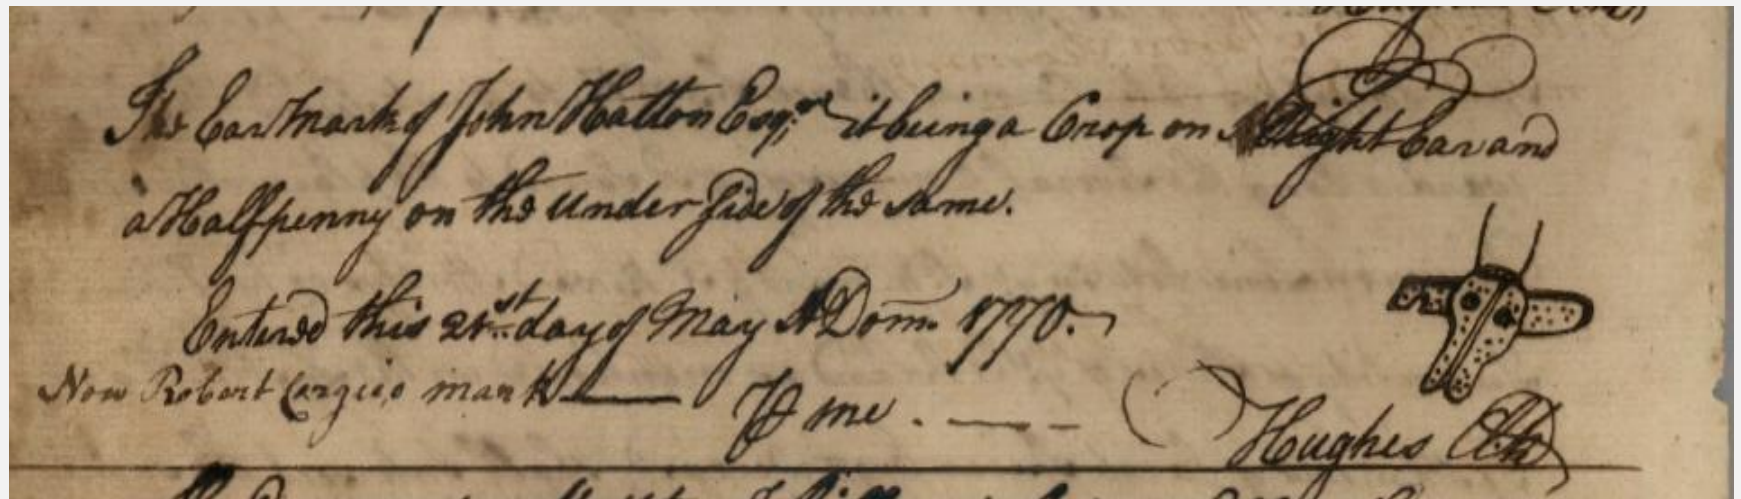 The Ear Mark of John Hatton Esqr. it being a Crop on Right Ear and
a Halfpenny on the Under Side of the Same.
Entered this 21st. day of May A Dom. 1770.
Now Robert mark
me.
Hughes Clk